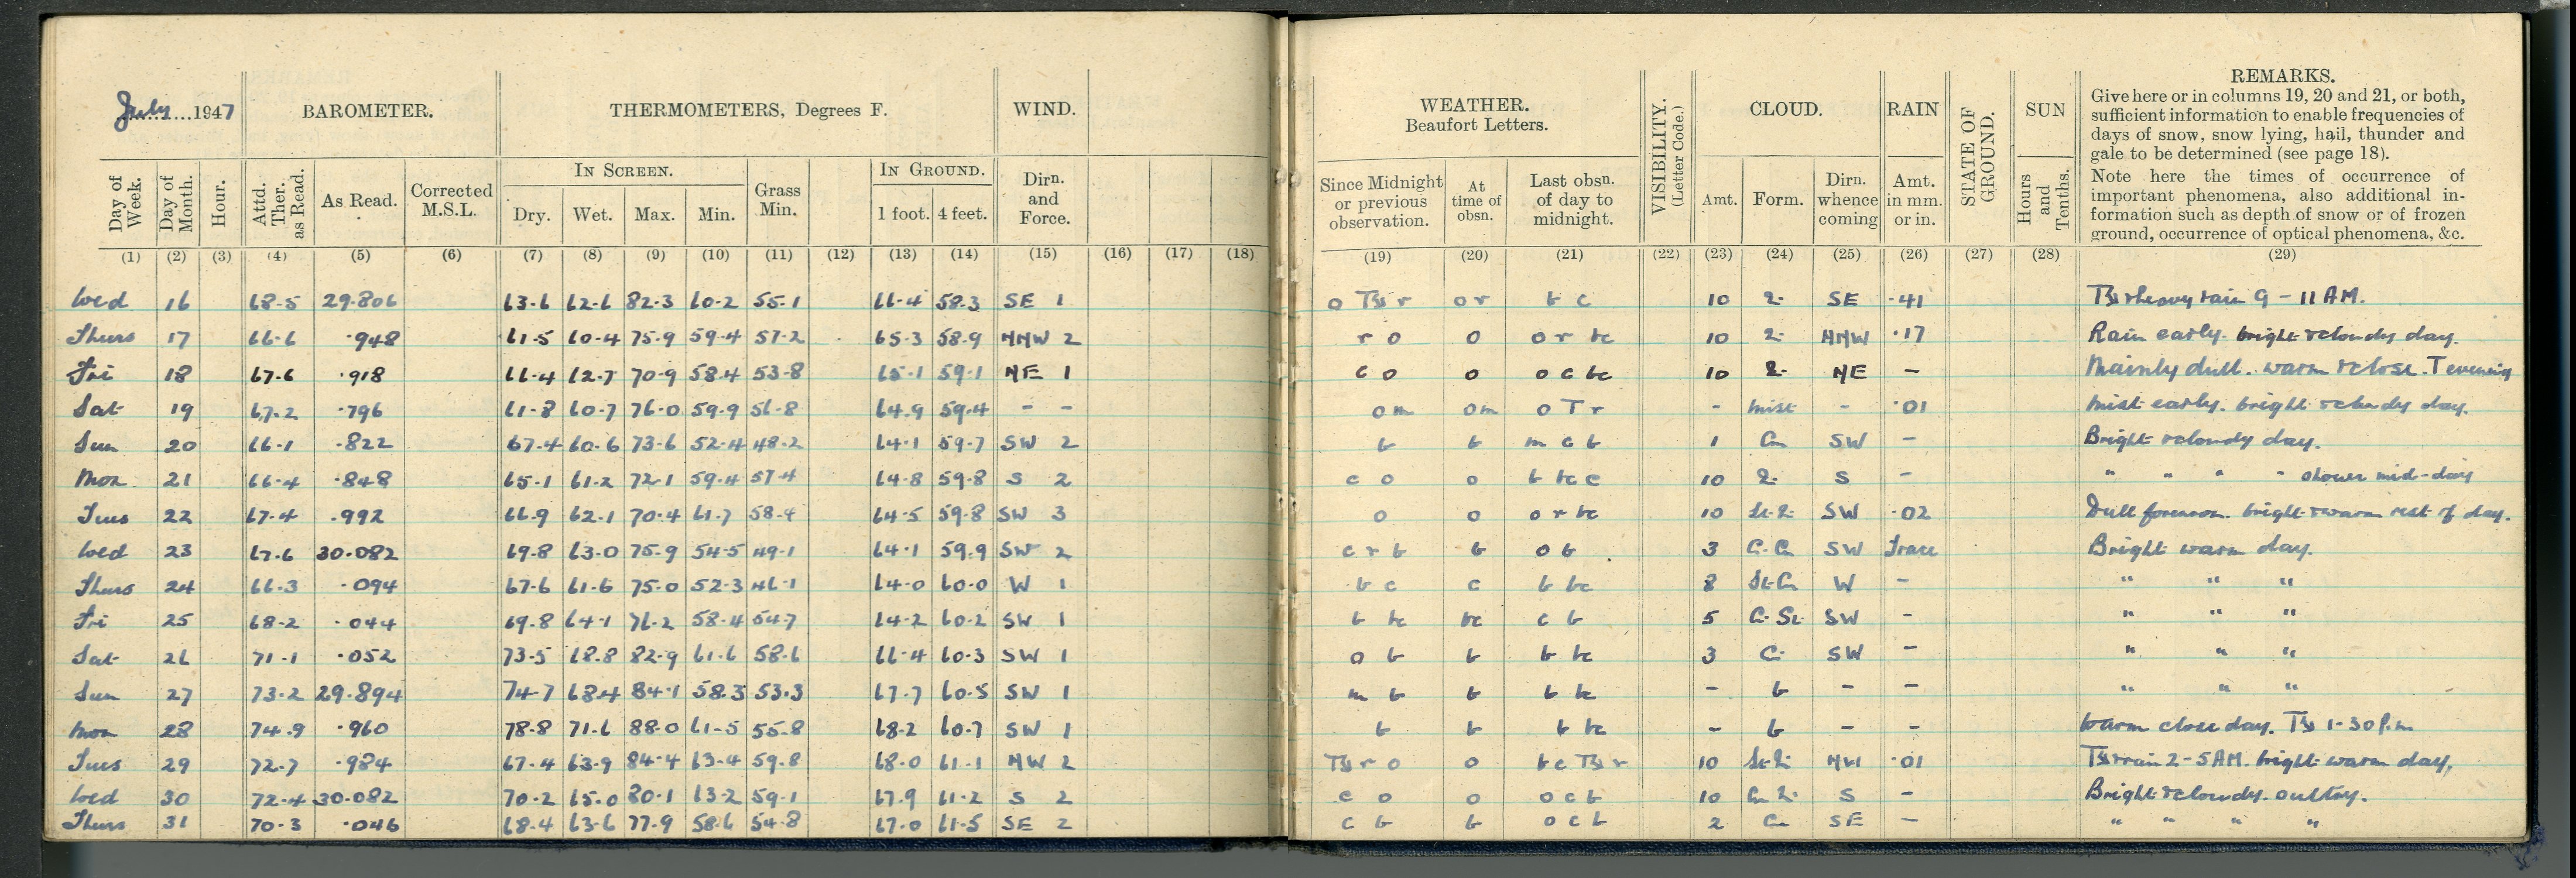 July 1947
BAROMETER.
THERMOMETERS, Degrees F.
WIND.
WEATHER.
Beaufort Letters.
VISIBILITY.
(Letter Code.)
CLOUD.
RAIN
STATE OF GROUND.
SUN
REMARKS.
Give here or in columns 19, 20 and 21, or both,
sufficient information to enable frequencies of
days of snow, snow lying, hail, thunder and
gale to be determined (see page 18).
Note here the times of occurrence of
important phenomena, also additional in-
formation such as depth of snow or of frozen
ground, occurrence of optical phenomena, &c.
Day of Week.
Day of Month.
Hour.
Attd. Ther. as Read.
As Read.
Corrected M.S.L.
IN SCREEN.
Dry. Wet. Max. Min.
Grass Min.
IN GROUND.
1 foot. 4 feet.
Dirn. and Force.
Since Midnight or previous observation.
At time of obsn.
Last obsn. of day to midnight.
Amt. Form. Dirn. whence coming
Amt. in mm. or in.
Hours and Tenths.
(1) (2) (3) (4) (5) (6) (7) (8) (9) (10) (11) (12) (13) (14) (15) (16) (17) (18) (19) (20) (21) (22) (23) (24) (25) (26) (27) (28) (29)
Wed 16 68.5 29.806 63.6 62.6 82.3 60.2 55.1 66.4 58.3 SE 1 o r o r b c 10 SE .41 heavy rain 9 - 11 AM.
Thurs 17 66.6 .948 61.5 60.4 75.9 59.4 57.2 65.3 58.9 NNW 2 r o o o r bc 10 NNW .17 Rain early. bright & cloudy day.
Fri 18 67.6 .918 66.4 62.7 70.9 58.4 53.8 65.1 59.1 NE 1 c o o o c bc 10 NE - Mainly dull. warm & close. T evening
Sat 19 67.2 .796 61.8 60.7 76.0 59.9 56.8 64.9 59.4 - - o m o m o T r - mist - .01 mist early. bright & cloudy day.
Sun 20 66.1 .822 67.4 60.6 73.6 52.4 48.2 64.1 59.7 SW 2 b b m c b 1 Cu SW - Bright & cloudy day.
Mon 21 66.4 .848 65.1 61.2 72.1 59.4 57.4 64.8 59.8 S 2 c o o b bc c 10 S - " " " " shower mid-day
Tues 22 67.4 .992 66.9 62.1 70.4 61.7 58.4 64.5 59.8 SW 3 o o o r bc 10 SW .02 Dull forenoon. bright & warm rest of day.
Wed 23 67.6 30.082 69.8 63.0 75.9 54.5 49.1 64.1 59.9 SW 2 c r b b o b 3 Ci-Cu SW Trace Bright warm day.
Thurs 24 66.3 .094 67.6 61.6 75.0 52.3 46.1 64.0 60.0 W 1 b c c b bc 8 St-Cu W - " " "
Fri 25 68.2 .044 69.8 64.1 76.2 58.4 54.7 64.2 60.2 SW 1 b bc bc c b 5 Ci-St SW - " " "
Sat 26 71.1 .052 73.5 68.8 82.9 61.6 58.6 66.4 60.3 SW 1 o b b b bc 3 Ci SW - " " "
Sun 27 73.2 29.894 74.7 68.4 84.1 58.3 53.3 67.7 60.5 SW 1 m b b b bc - b - - " " "
Mon 28 74.9 .960 78.8 71.6 88.0 61.5 55.8 68.2 60.7 SW 1 b b b bc - b - - Warm close day. 1-30 P.m
Tues 29 72.7 .984 67.4 63.9 84.4 63.4 59.8 68.0 61.1 NW 2 r o o bc r 10 NW .01 rain 2 - 5 AM. bright warm day,
Wed 30 72.4 30.082 70.2 65.0 80.1 63.2 59.1 67.9 61.2 S 2 c o o o c b 10 S - Bright & cloudy. sultry.
Thurs 31 70.3 .046 68.4 63.6 77.9 58.6 54.8 67.0 61.5 SE 2 c b b o c b 2 Cu SE - " " " "